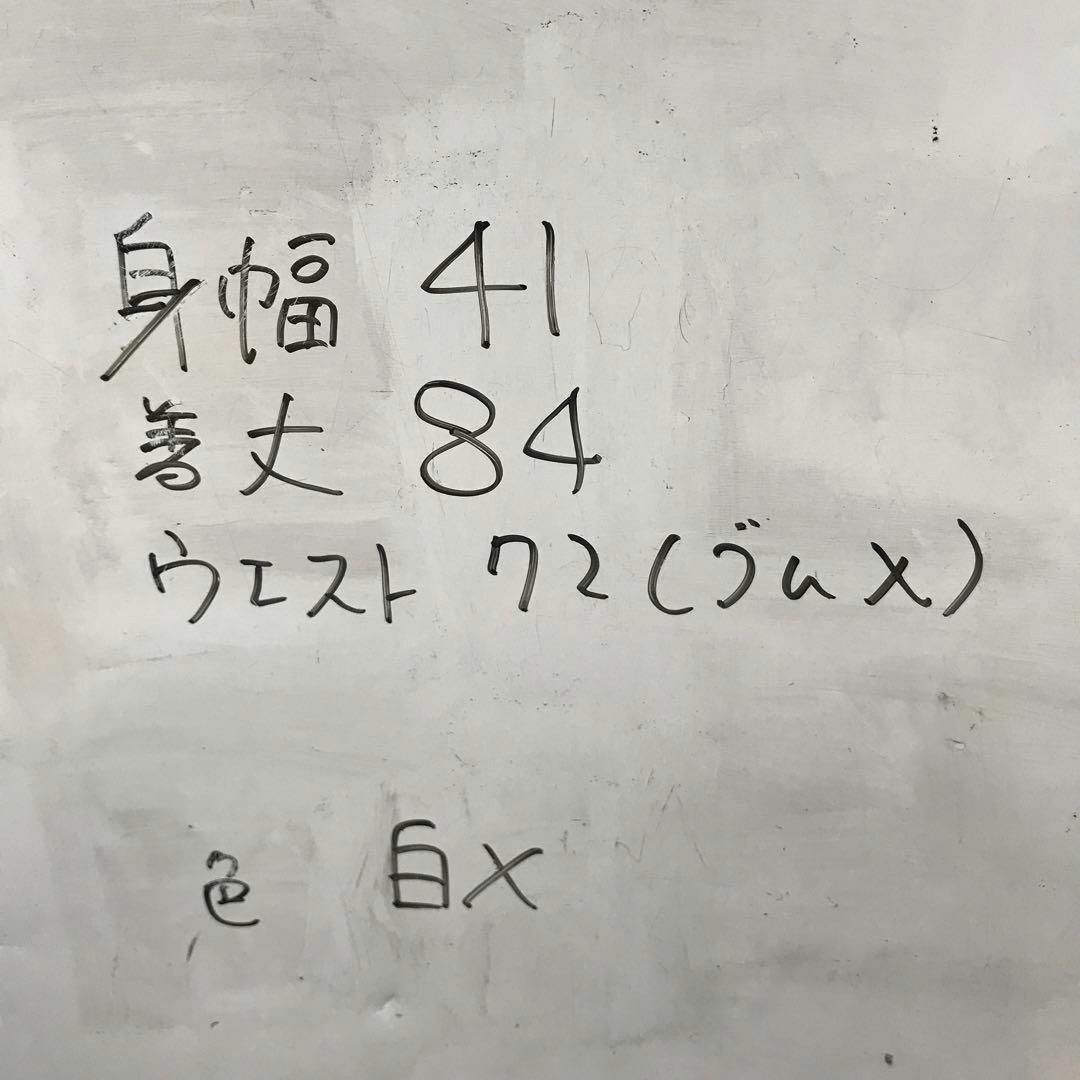 身幅 41
着丈 84
ウエスト 72(ゴム×)
色 白×